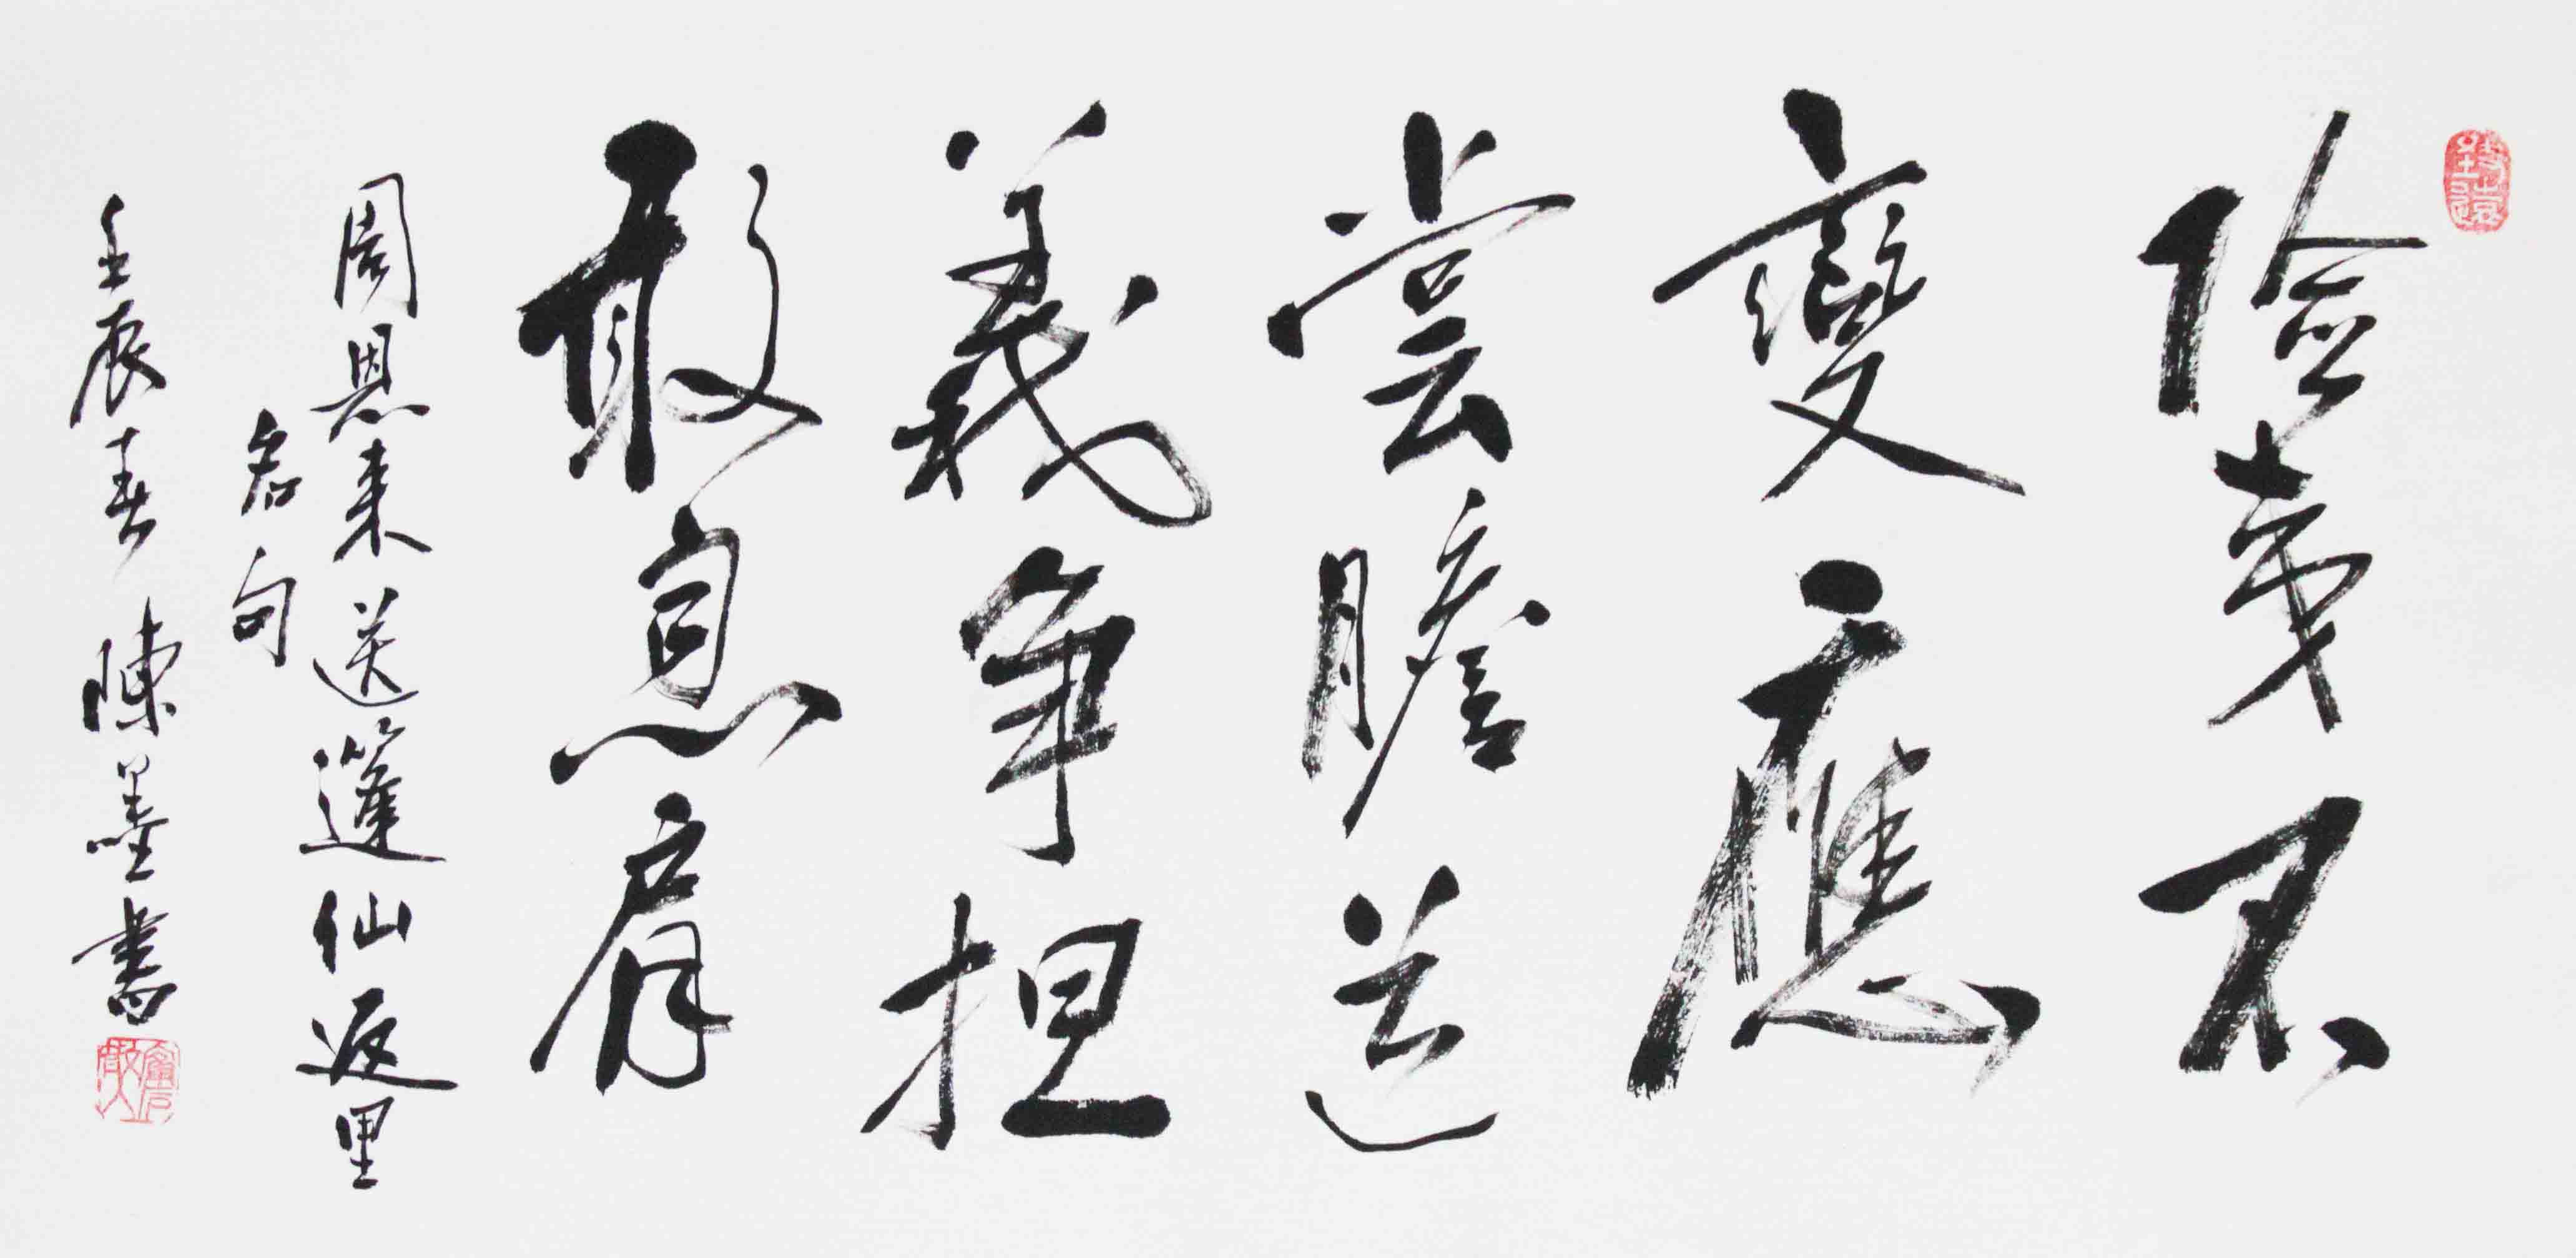 險夷不
變應
嘗膽道
義争担
敢息肩
周恩来送蓬仙返里
名句
壬辰春 陳墨書